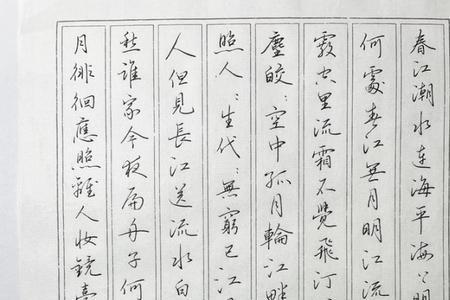 春江潮水連海平海上明
何處春江無月明江流
霰空里流霜不覺飛汀
塵皎〻空中孤月輪江畔
照人〻生代〻無窮已江
人但見長江送流水白
愁誰家今夜扁舟子何
月徘徊應照離人妆鏡臺